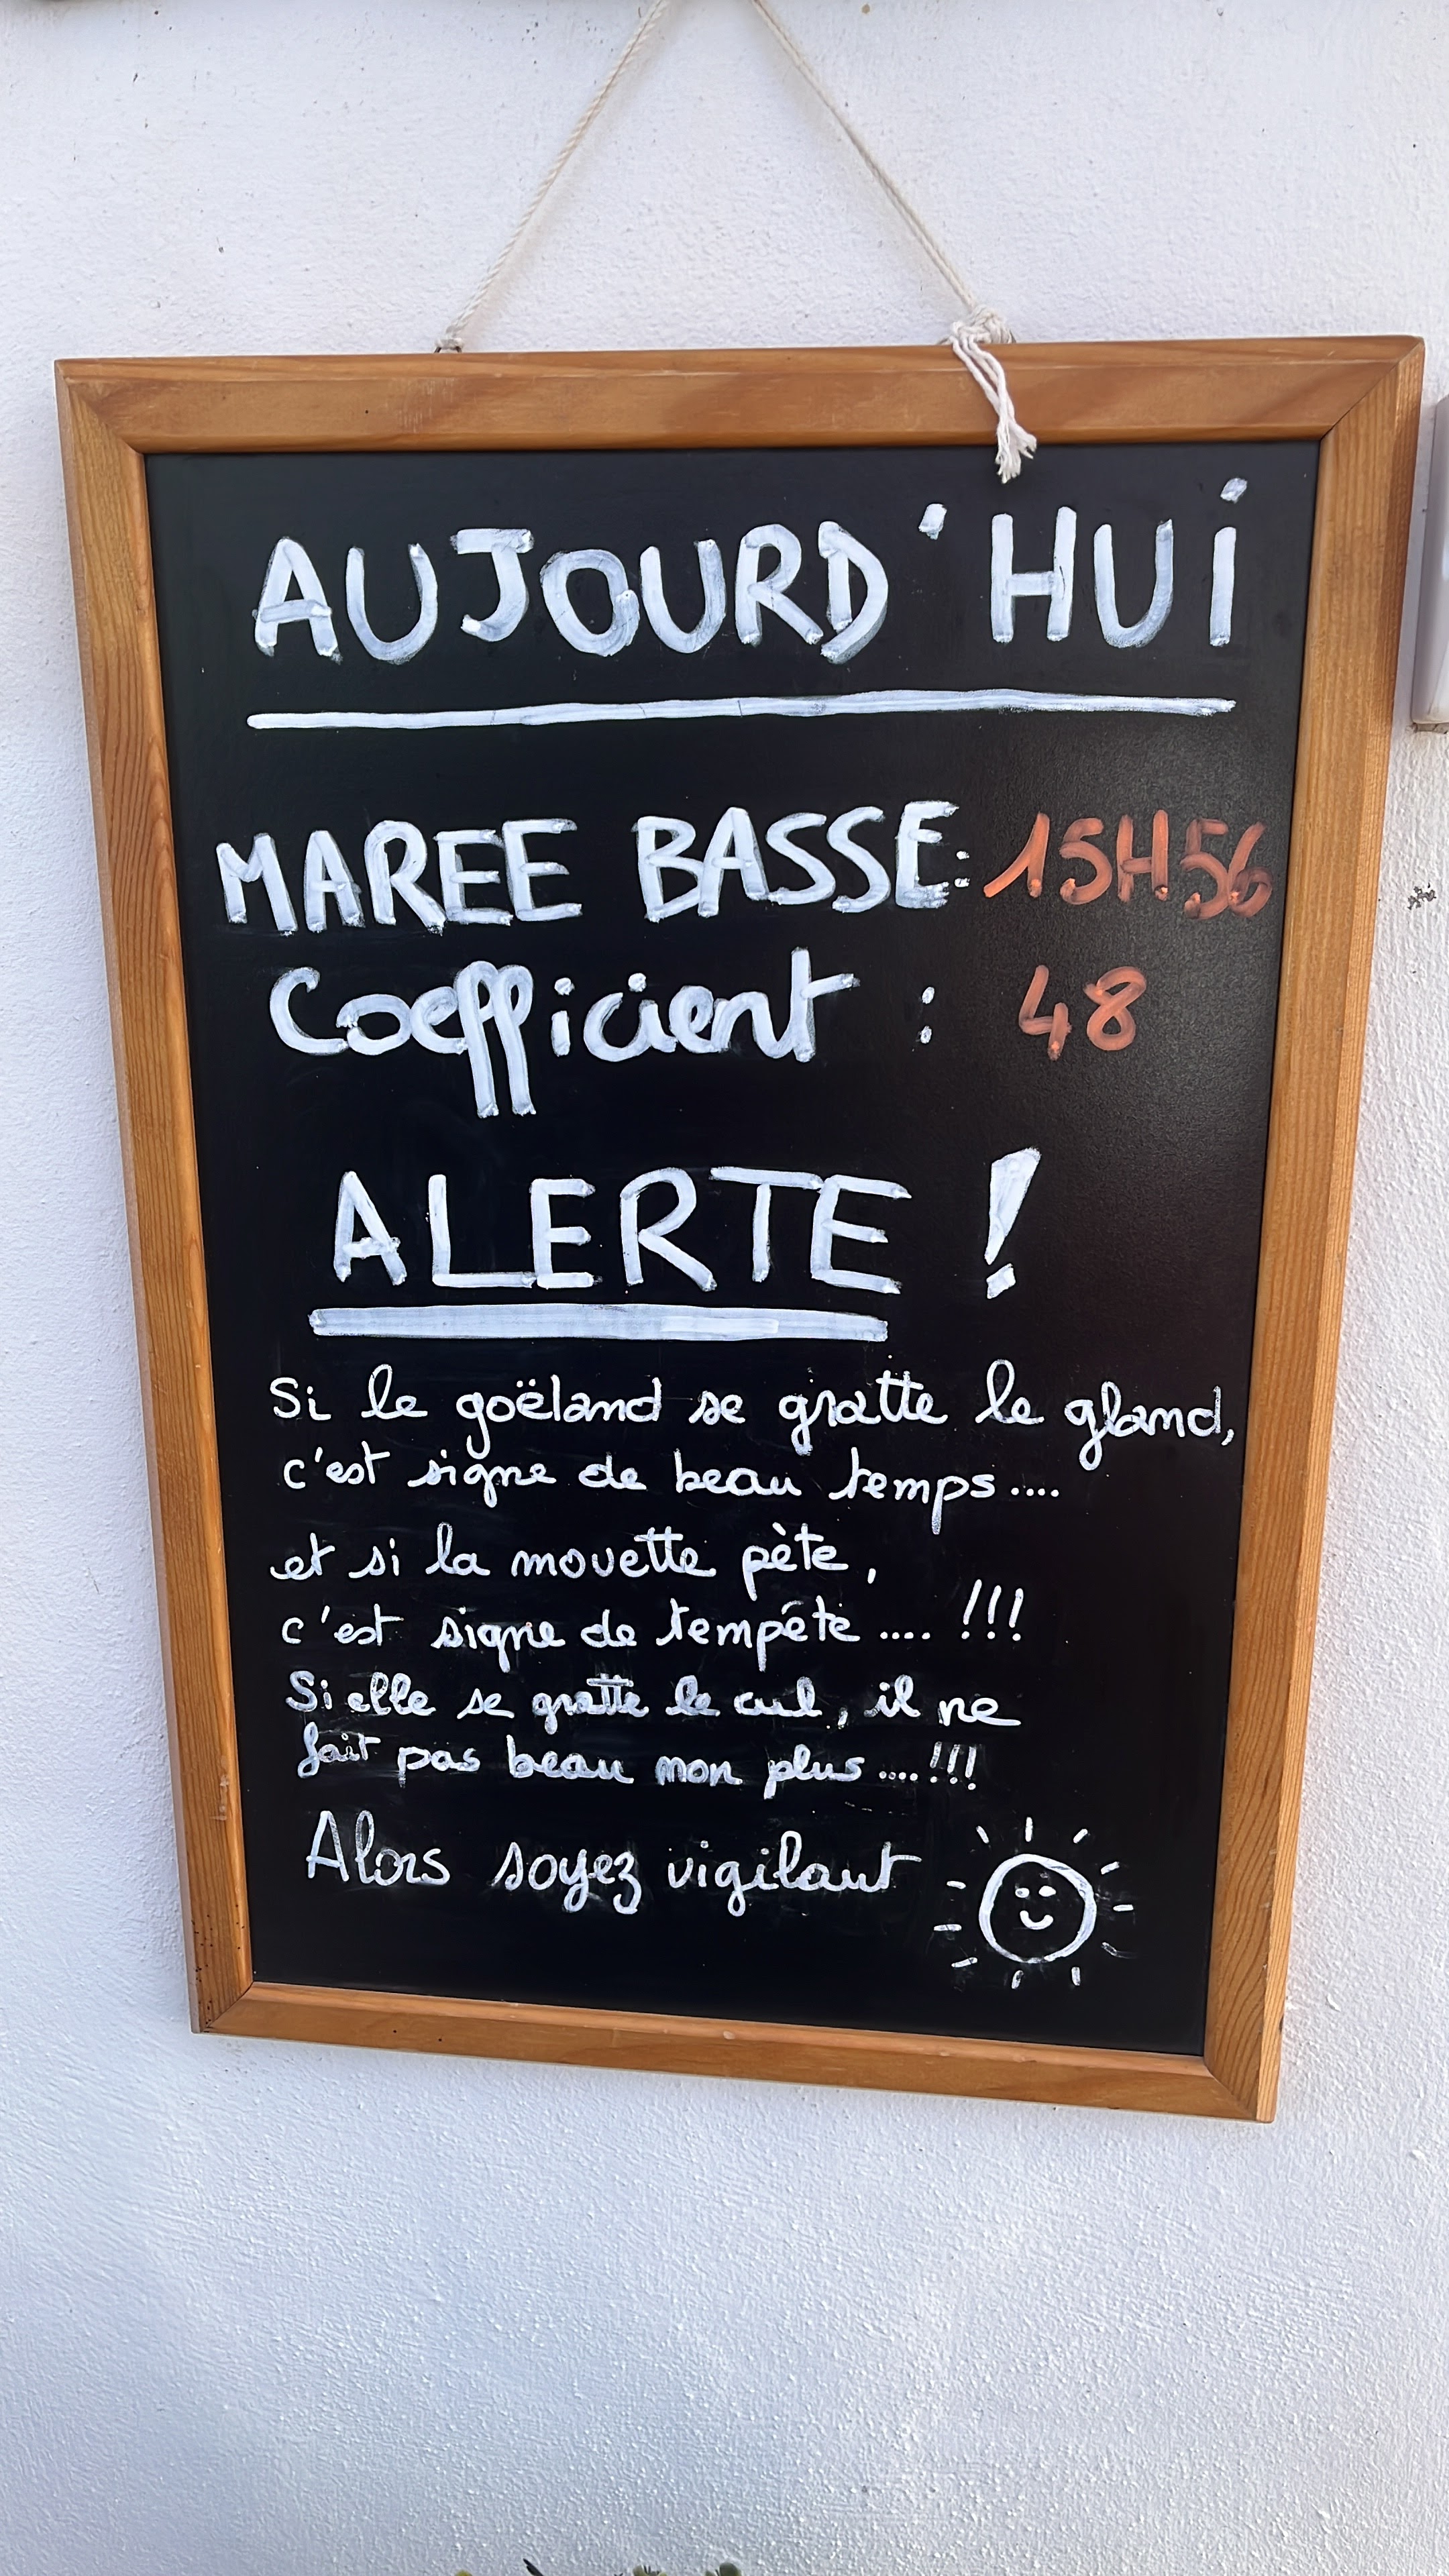 AUJOURD'HUi
MAREE BASSE: 15H56
Coefficient : 48
ALERTE !
Si le goëland se gratte le gland,
c'est signe de beau temps....
et si la mouette pète,
c'est signe de tempête .... !!!
Si elle se gratte le cul, il ne
fait pas beau non plus ....!!!
Alors soyez vigilant